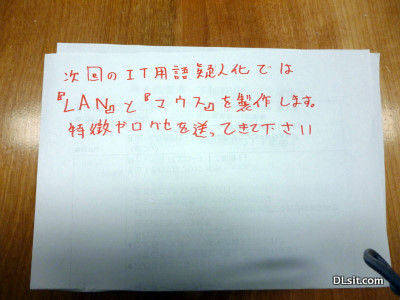 次回のIT用語疑人化では
『LAN』と『マウス』を製作します。
特徴や口グセを送ってきて下さい
DLsit.com